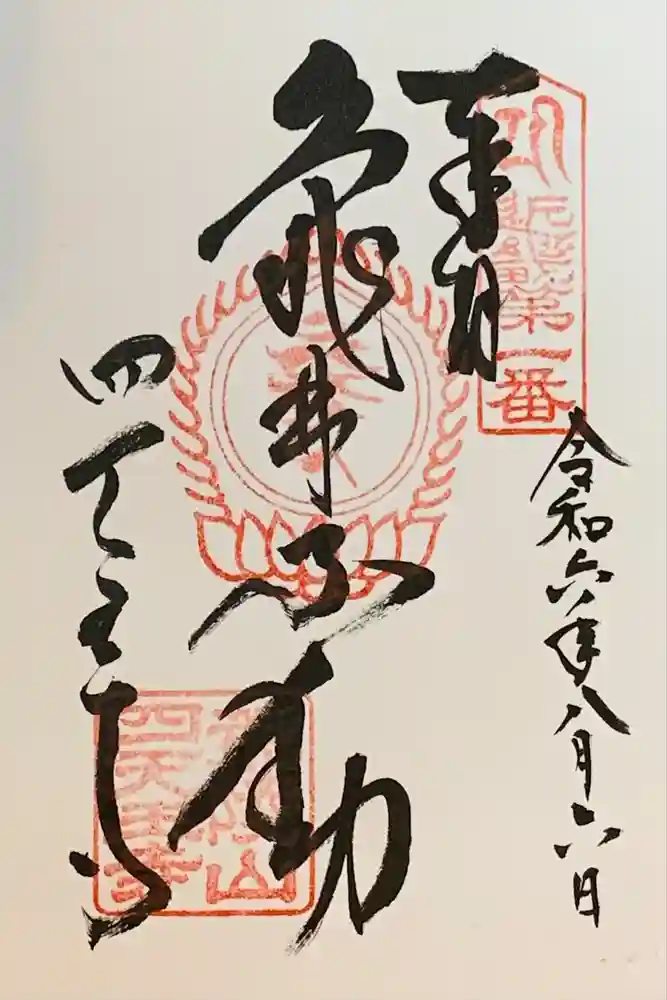 奉拝
近畿第一番
令和六年八月六日
亀井不動
四天王寺
荒陵山
四天王寺